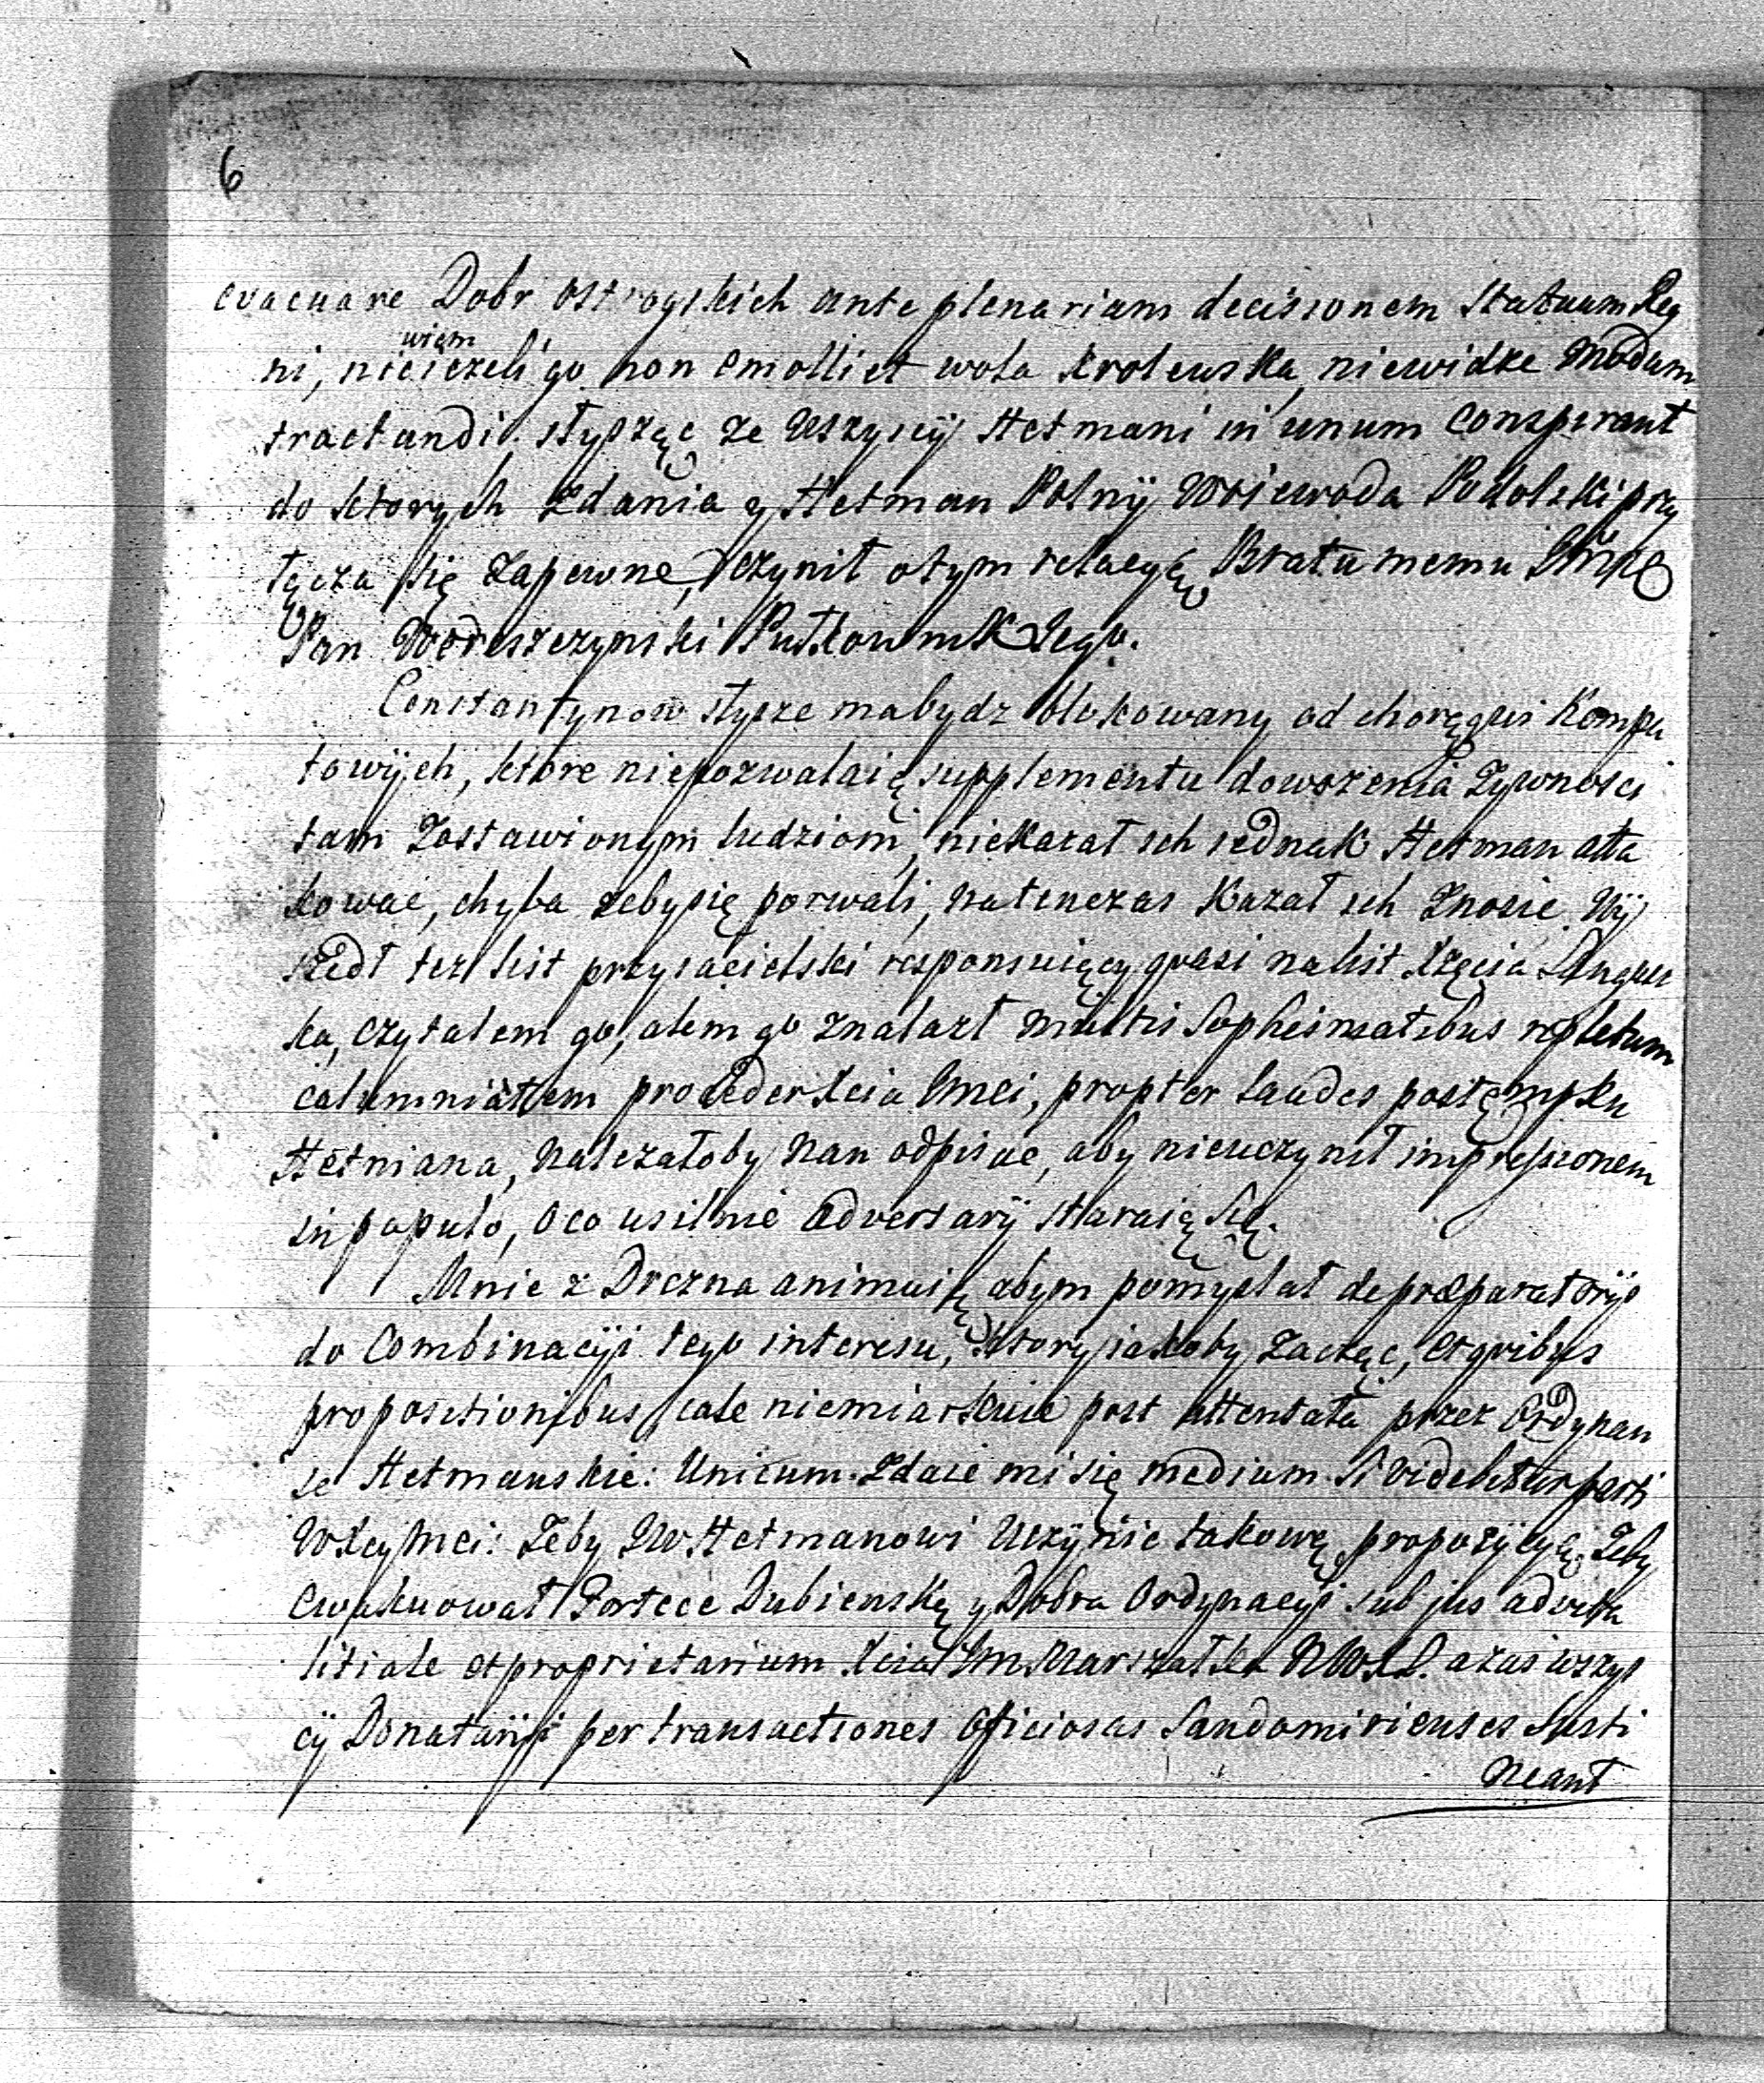 6
evacuare Dobr Ostrogskich ante plenariam decisionem Statuum Reg
wiem
ni, nie ieżeli go non emolliet wola Krolewska, niewidze modum
tractandi, słysząc ze wszyscÿ Hetmani in unum conspirant
do ktorych zdania y Hetman Polnÿ Woiewoda Podolski przy
łącza się zapewne, czynił otym relacyą Bratu memu Jmp
Pan Woreszczynski Pułkownik Jego.
Constantynow słysze mabydz blokowany od choręgwi Kompu
towÿch, ktore niepozwalaią supplementu dowożenia Zywnosci
tam zostawionym ludziom, niekazał ich iednak Hetman atta
kować, chyba zebysię porwali, natenczas Kazał ich znosic. Wÿ
szedł tez list przyiacielski responsuiący quasi nalist Xzęcia Sangus
ka, czytalem go, alem go znalazł multis Sophismatibus repletum
calumniatem proceder Xcia Jmci, propter laudes postęmpku
Hetmana, nalezałoby nan odpisac, aby nieuczynił impressionem
in populo, oco usilnie adversarÿ staraią się.
Mnie z Drezna animuią abym pomyslał de præparatorÿs
do Combinacÿi tego interesu, ktory iakoby zacząc, et quibus
propositionibus cale niemiarkuie post attentata przez Ordynan
se Hetmanskie: Unicum zdaie mi się medium si videbitur parti
WXcyMci: Zeby JW Hetmanowi uczÿnic takową propozÿcyą, Zeby
ewakuował Fortece Dubienską y Dobra OrdynacÿI sub jus advita
litiale et proprietarium Xcia Jm Marszałka NWXL. azas wszys
cÿ Donatarÿi per transactiones officiosas Sandomirienses susti
neant